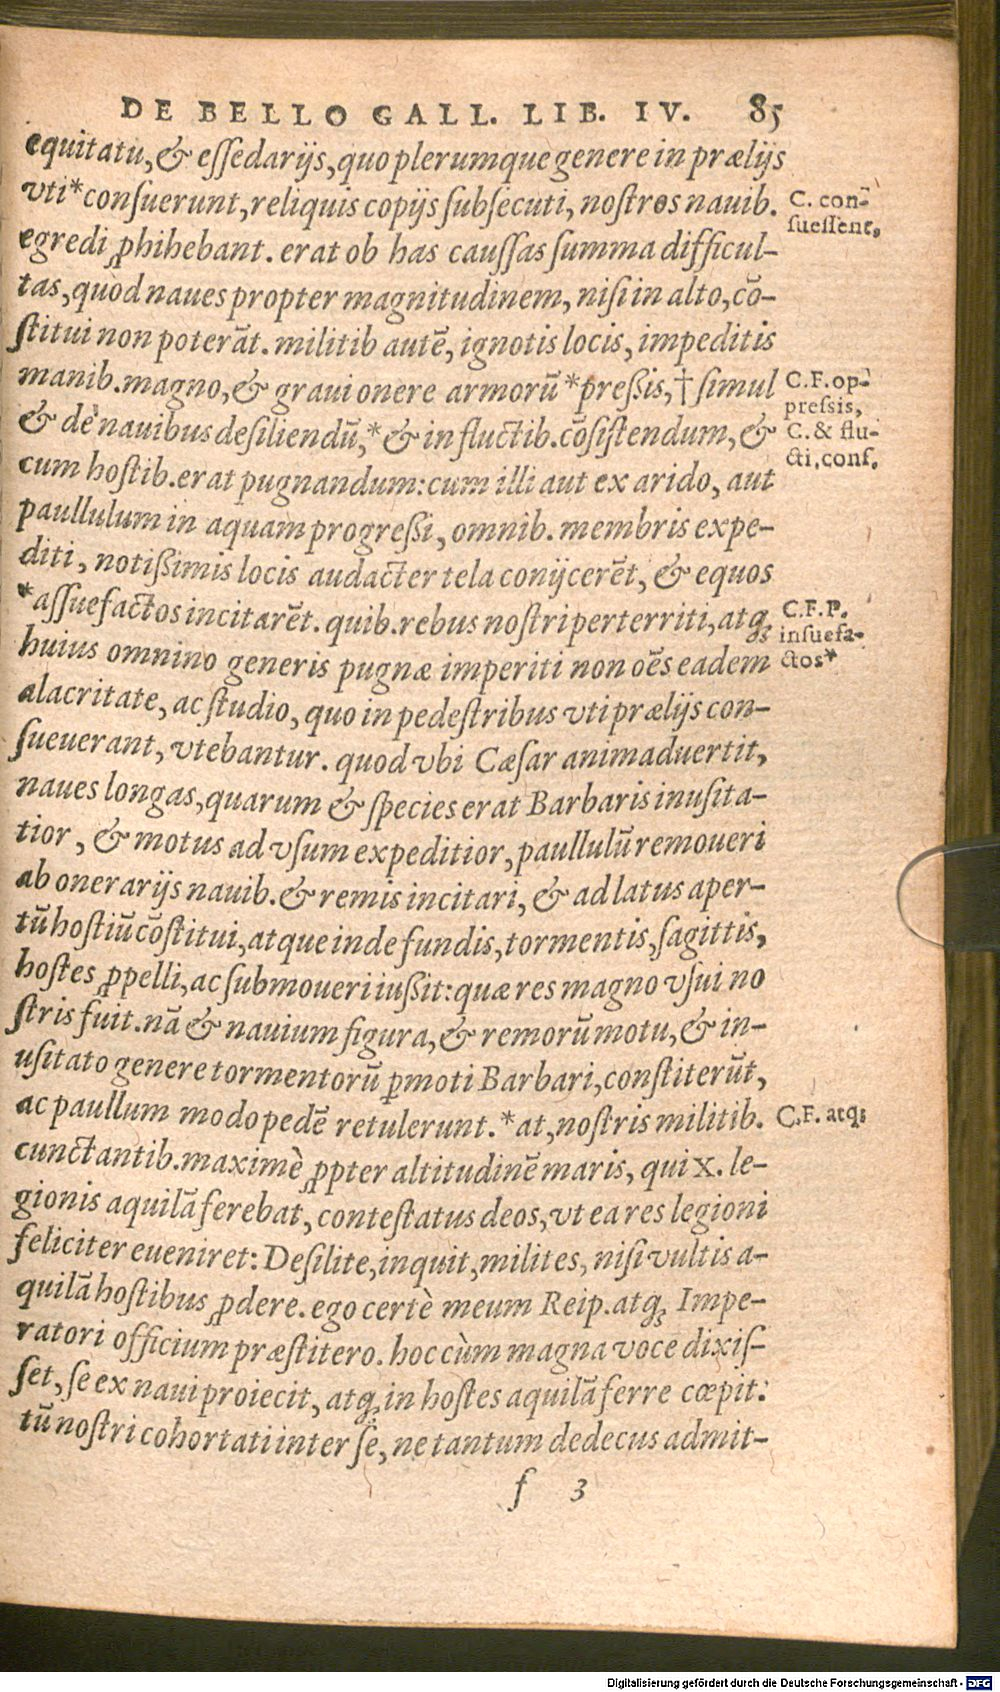 DE BELLO GALL. LIB. IV. 85
equitatu, & eſſedarijs, quo plerumque genere in prælijs
vti*conſuerunt, reliquis copijs ſubſecuti, noſtros nauib.
C. con-
ſueſſent,
egredi ꝓhibebant. erat ob has cauſſas ſumma difficul-
tas, quòd naues propter magnitudinem, niſi in alto, cō-
ſtitui non poterāt. militib autē, ignotis locis, impeditis
manib. magno, & graui onere armorū *preßis, † ſimul
C.F. op-
preſsis,
& de nauibus deſiliendū, * & in fluctib. cōſiſtendum, &
C. & flu-
cti. conſ.
cum hoſtib. erat pugnandum: cum illi aut ex arido, aut
paullulum in aquam progreßi, omnib. membris expe-
diti, notißimis locis audacter tela conijcerēt, & equos
*aſſuefactos incitarēt. quib. rebus noſtri perterriti, atq;
C.F.P.
inſuefa-
ctos*
huius omnino generis pugnæ imperiti non oēs eadem
alacritate, ac ſtudio, quo in pedeſtribus vti prælijs con-
ſueuerant, vtebantur. quod vbi Cæſar animaduertit,
naues longas, quarum & ſpecies erat Barbaris inuſita-
tior, & motus ad vſum expeditior, paullulū remoueri
ab onerarijs nauib. & remis incitari, & ad latus aper-
tū hoſtiū cōſtitui, atque inde fundis, tormentis, ſagittis,
hoſtes ꝓpelli, ac ſubmoueri iußit: quæ res magno vſui no
ſtris fuit. nā & nauium figura, & remorū motu, & in-
uſitato genere tormentorū ꝑmoti Barbari, conſtiterūt,
ac paullum modo pedē retulerunt. *at, noſtris militib.
C.F. atq;
cunctantib. maximè ꝓpter altitudinē maris, qui X. le-
gionis aquilā ferebat, conteſtatus deos, vt ea res legioni
feliciter eueniret: Deſilite, inquit, milites, niſi vultis a-
quilā hoſtibus ꝓdere. ego certè meum Reip. atq; Impe-
ratori officium præſtitero. hoc cùm magna voce dixiſ-
ſet, ſe ex naui proiecit, atq; in hoſtes aquilā ferre cœpit.
tū noſtri cohortati inter ſe, ne tantum dedecus admit-
f 3
Digitalisierung gefördert durch die Deutsche Forschungsgemeinschaft - DFG